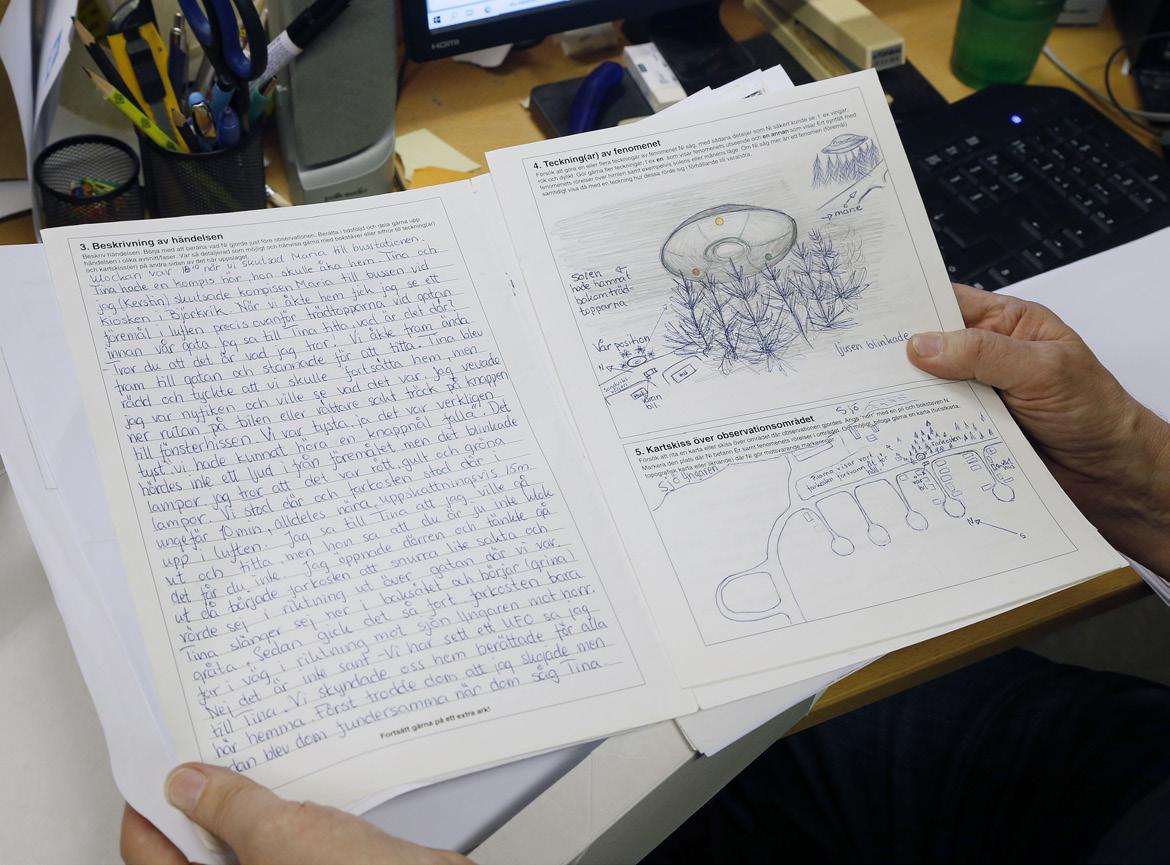 HDMI
3. Beskrivning av händelsen
Beskriv händelsen. Börja med att berätta vad Ni gjorde just före observationen. Berätta i tidsföljd och dela gärna upp
händelsen i olika avsnitt/faser. Var så detaljerad som möjligt och hänvisa gärna med bokstäver eller siffror till teckning(ar)
och kartskiss(er) på andra sidan av det här uppslaget.
Klockan var när vi skulsad Maria till busstationen.
Tina hade en kompis här hon skulle åka hem. Tina och
jag (Kerstin) skulsade kompisen Maria till bussen vid
kiosken i Björkvik. När vi åkte hem fick jag se ett
föremål i luften precis ovanför trädtopparna vid gatan
innan vår gata jag sa till Tina titta vad är det där?
Tror du att det är vad jag tror! Vi åkte fram ända
fram till gatan och stannade för att titta. Tina blev
rädd och tyckte att vi skulle fortsätta hem, men
jag var nyfiken och ville se vad det var. Jag vevade
ner rutan på bilen eller rättare sakt träck på knappen
till fönsterhissen. Vi var tysta, ja det var verkligen
tyst vi hade kunnat höra en knappnål falla". Det
hördes inte ett ljud i från föremålet men det blinkade
lampor jag tror att det var rött, gult och gröna
lampor. Vi stod där och farkosten stod där i
ungefär 10 min, alldeles nära, uppskattningsvis 15 m
upp i luften. Jag sa till Tina att jag ville gå
ut och titta men hon sa att du är ju inte klok
det får du inte. Jag öppnade dörren och tänkte gå
ut då började farkosten att snurra lite sakta och
rörde sej i riktning ut över gatan där vi var.
Tina slänger sej ner i baksätet och börjar (grina)
gråta. Sedan gick det så fort farkosten bara
far i väg i riktning mot sjön Yngaren mot norr.
Nej det är inte sant -Vi har sett ett UFO sa jag
till Tina. Vi skyndade oss hem berättade för alla
här hemma. Först trodde dom att jag skojade men
dan blev dom fundersamma när dom såg Tina
Fortsätt gärna på ett extra ark!
4. Teckning(ar) av fenomenet
Försök att göra en eller flera teckningar av fenomenet Ni såg, med sådana detaljer som Ni säkert kunde se, t. ex. vingar,
rök och dylikt. Gör gärna fler teckningar, t ex en som visar fenomenets utseende och en annan som visar
fenomenets rörelser över himlen samt exempelvis solens eller månens läge. Om Ni såg mer än ett fenomen (föremål)
samtidigt visa då med en teckning hur dessa rörde sig i förhållande till varandra.
måne
Solen
hade hamnat
bakom träd-
topparna
Vår position
N
Våran
bil
ljusen blinkade
5. Kartskiss över observationsområdet
Försök att rita en karta eller skiss över området där observationen gjordes. Ange "norr" med en pil och bokstaven N.
Markera den plats där Ni befann Er samt fenomenets rörelser i området. Om möjligt, bifoga gärna en karta (turistkarta,
topografisk karta eller liknande) där Ni gör motsvarande markeringar.
Sjö
Sjö Yngaren
Pilarna visar vart
farkosten försvann
farkosten
vår
bil
N
S